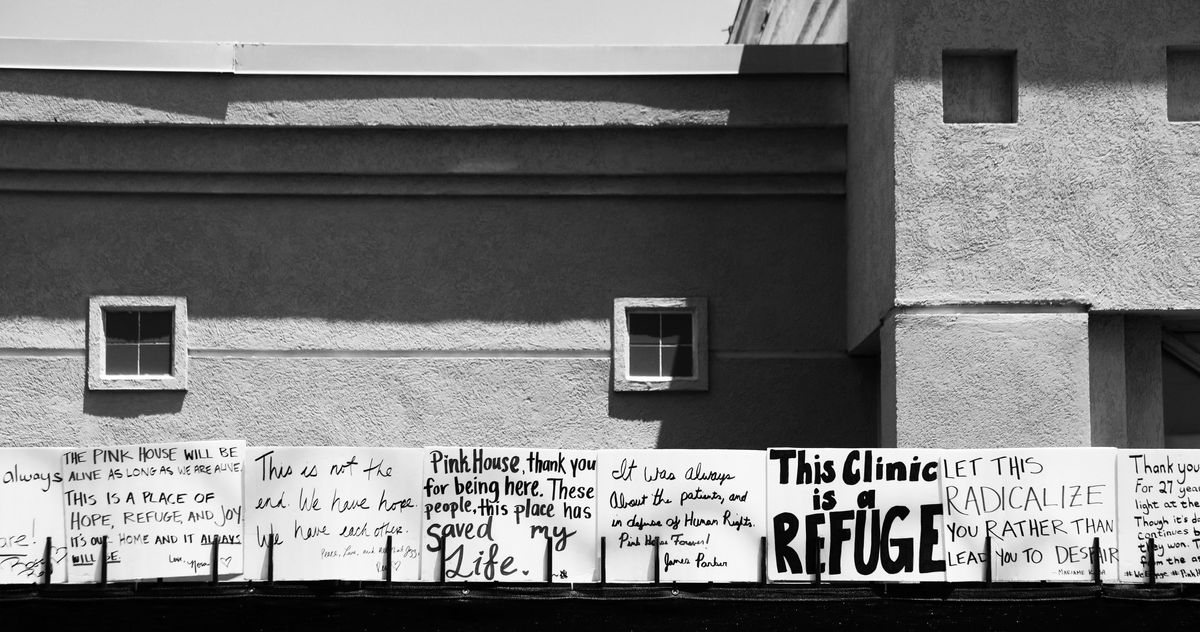 always
THE PINK HOUSE WILL BE
ALIVE AS LONG AS WE ARE ALIVE.
THIS IS A PLACE OF
HOPE, REFUGE, AND JOY
IT'S OUR HOME AND IT ALWAYS
WILL BE.
This is not the
end. We have hope.
We have each other.
Peace, Love, and
Pink House, thank you
for being here. These
people, this place has
saved my
Life.
It was always
About the patients, and
in defense of Human Rights.
Pink House Forever!
James Parker
This Clinic
is a
REFUGE
LET THIS
RADICALIZE
YOU RATHER THAN
LEAD YOU TO DESPAIR
Thank you
For 27 year
light at the
Though it's d
continues b
they won. T
from the a